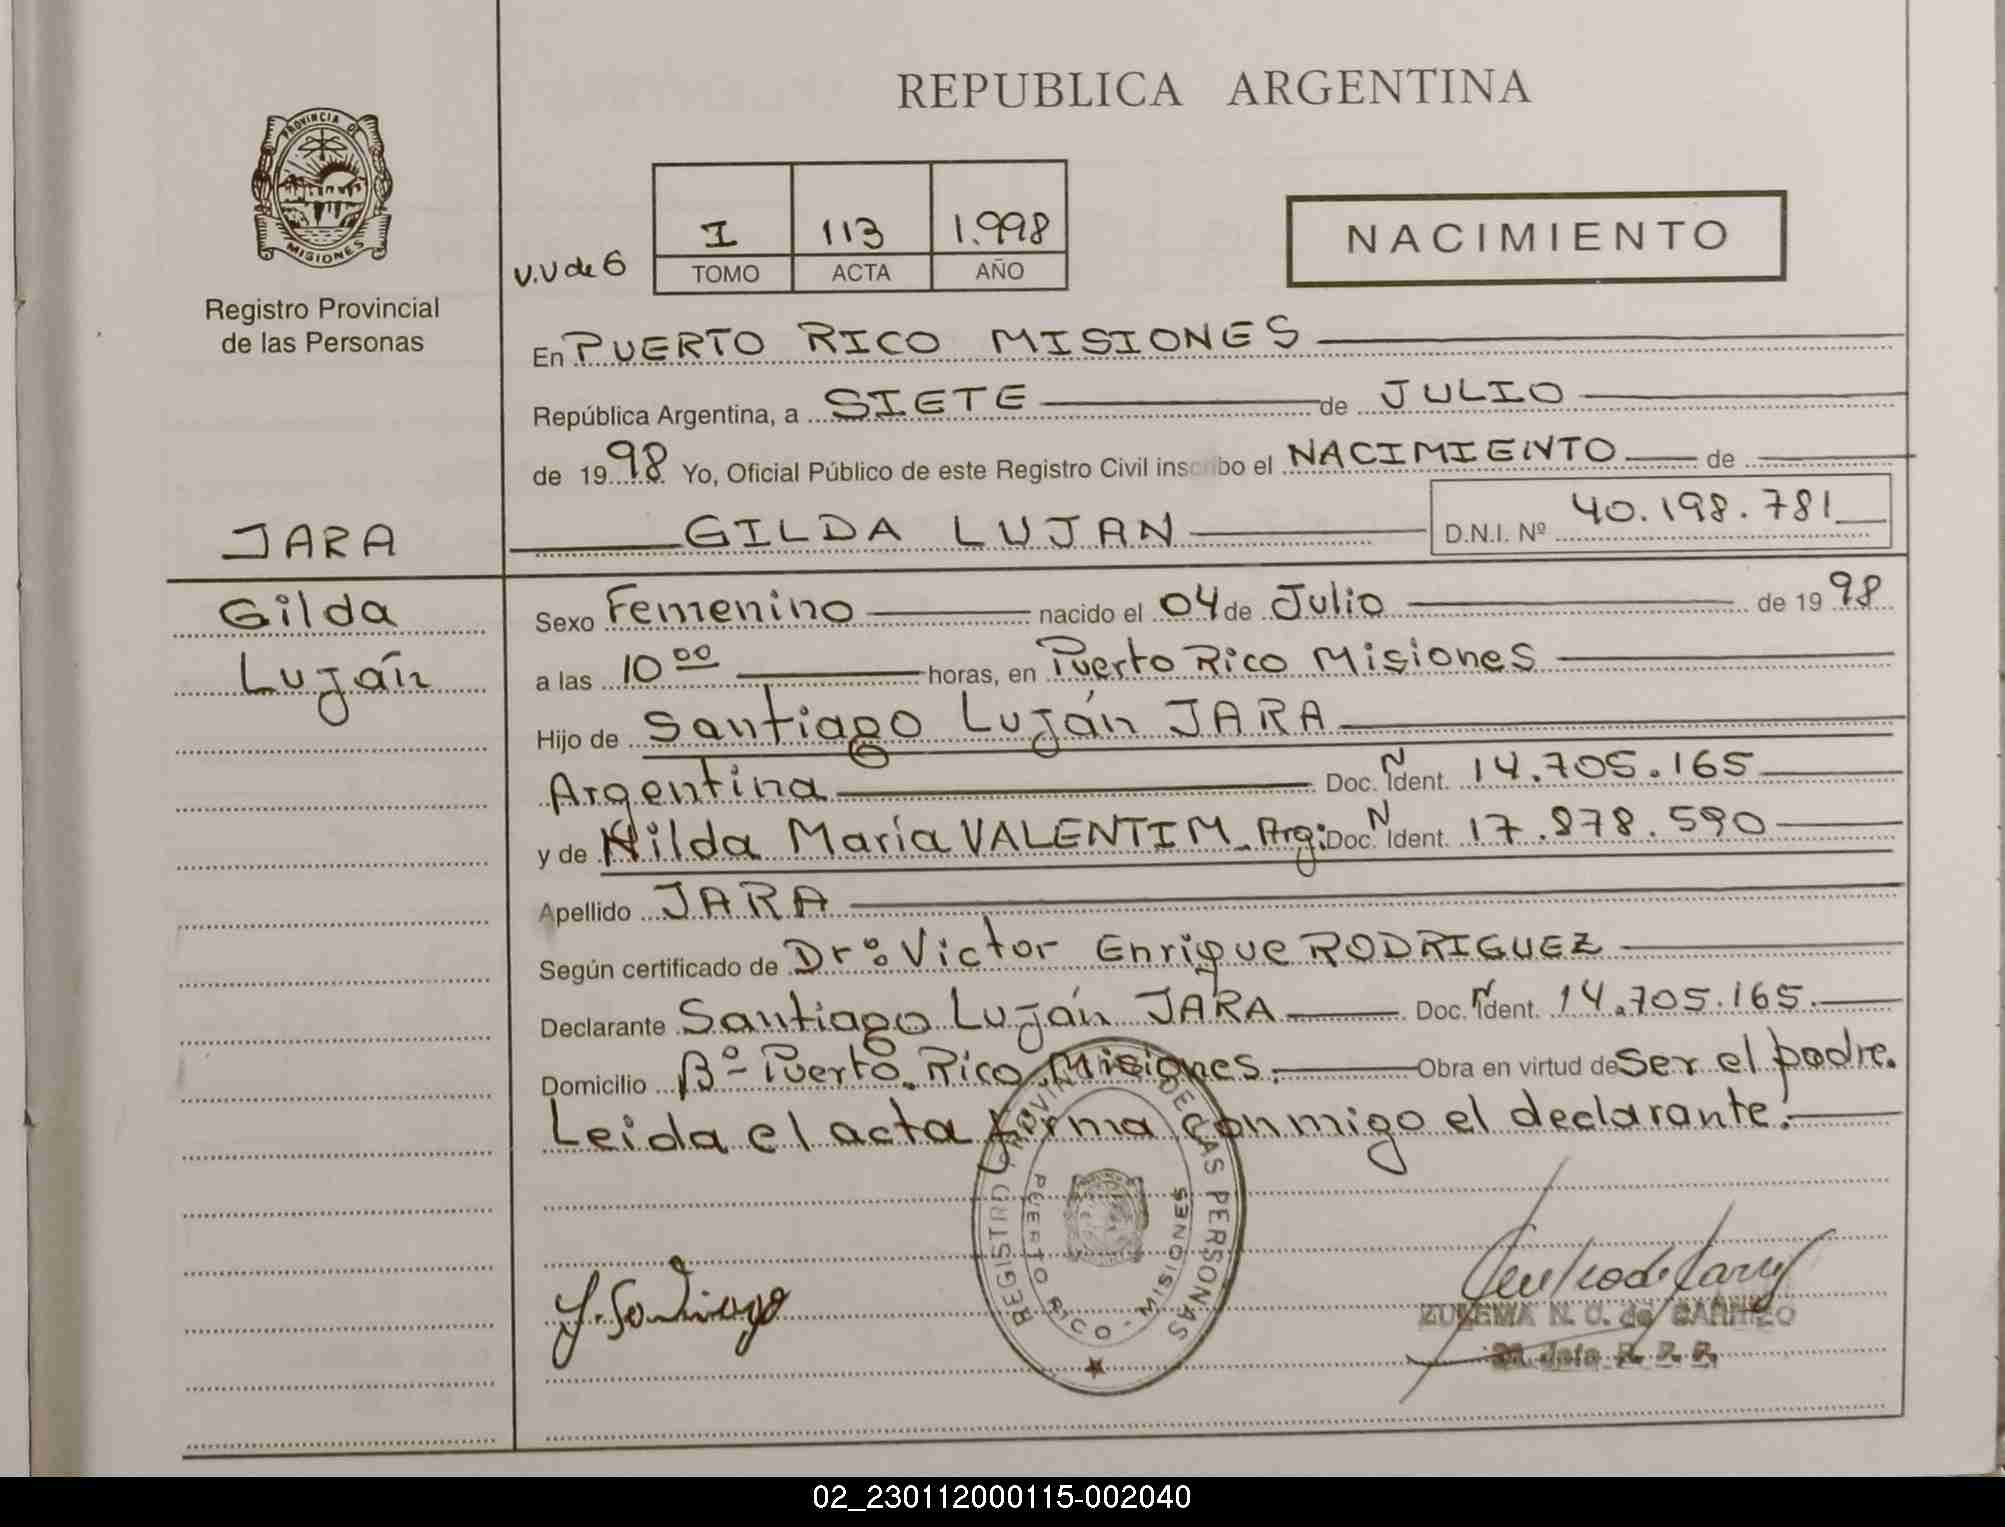 REPUBLICA ARGENTINA
PROVINCIA DE
MISIONES
Registro Provincial
de las Personas
V.V de 6
I 113 1.998
TOMO ACTA AÑO
NACIMIENTO
En PUERTO RICO MISIONES
República Argentina, a SIETE de JULIO
de 1998 Yo, Oficial Público de este Registro Civil inscribo el NACIMIENTO de
JARA
GILDA LUJAN
D.N.I. Nº 40.198.781
Gilda
Luján
Sexo Femenino nacido el 04 de Julio de 1998
a las 10 00 horas, en Puerto Rico Misiones
Hijo de Santiago Luján JARA
Argentina Doc. N Ident. 14.705.165
y de Nilda María VALENTIM Arg: Doc. N Ident. 17.878.590
Apellido JARA
Según certificado de Dr: Victor Enrique RODRIGUEZ
Declarante Santiago Luján JARA Doc. N Ident. 14.705.165.
Domicilio Bº- Puerto Rico Misiones. Obra en virtud de ser el padre.
Leida el acta firma conmigo el declarante.
REGISTRO PROVINCIAL DE LAS PERSONAS
PUERTO RICO - MISIONES
J. Santiago
ZULEMA N. C. de
Jefe R. P. P.
02_230112000115-002040